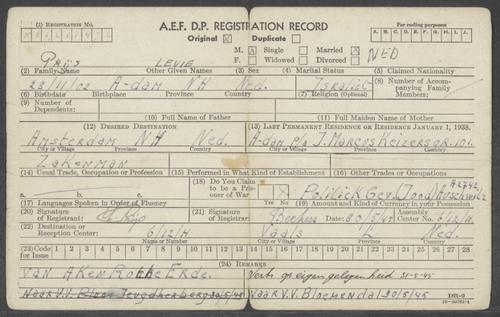 A.E.F. D.P. REGISTRATION RECORD
(1) REGISTRATION NO.
Original Duplicate
For coding purposes
A. B. C. D. E. F. G. H. I. J.
M. Single Married NED
F. Widowed Divorced
Pais LEVIE
(2) Family Name Other Given Names (3) Sex (4) Marital Status (5) Claimed Nationality
23/11/02 A-dam NH Ned. Israliet
(6) Birthdate Birthplace Province Country (7) Religion (Optional) (8) Number of Accompanying Family Members:
(9) Number of Dependents: (10) Full Name of Father (11) Full Maiden Name of Mother
(12) DESIRED DESTINATION (13) LAST PERMANENT RESIDENCE OR RESIDENCE JANUARY 1, 1938.
Amsterdam NH Ned. A-dam p/a J. Marcus Keizersgr. 101.
City or Village Province Country City or Village Province Country
Zakenman
(14) Usual Trade, Occupation or Profession (15) Performed in What Kind of Establishment (16) Other Trades or Occupations
a. b. c. (18) Do You Claim to be a Prisoner of War Yes No Politick Gev. Jood Auschwitz
(17) Languages Spoken in Order of Fluency (19) Amount and Kind of Currency in your Possession
(20) Signature of Registrant: (21) Signature of Registrar: Date: 20/5/45 Assembly Center No. 6/12/H.
(22) Destination or Reception Center: 6/12/H Vaals L Ned.
Name or Number City or Village Province Country
(23) Code for Issue 1 2 3 4 5 6 7 8 9 10 11 12 13 14 15 16 17 18 19 20 21 22 23 24 25 26 27 28
(24) REMARKS
Van Aken Rothe Erde. Vertr. op eigen gelegenheid 31-5-45
Naar V.V. Jeugdherberg 20/5/45 Naar V.V. Bloemendal 20/5/45
DR-2